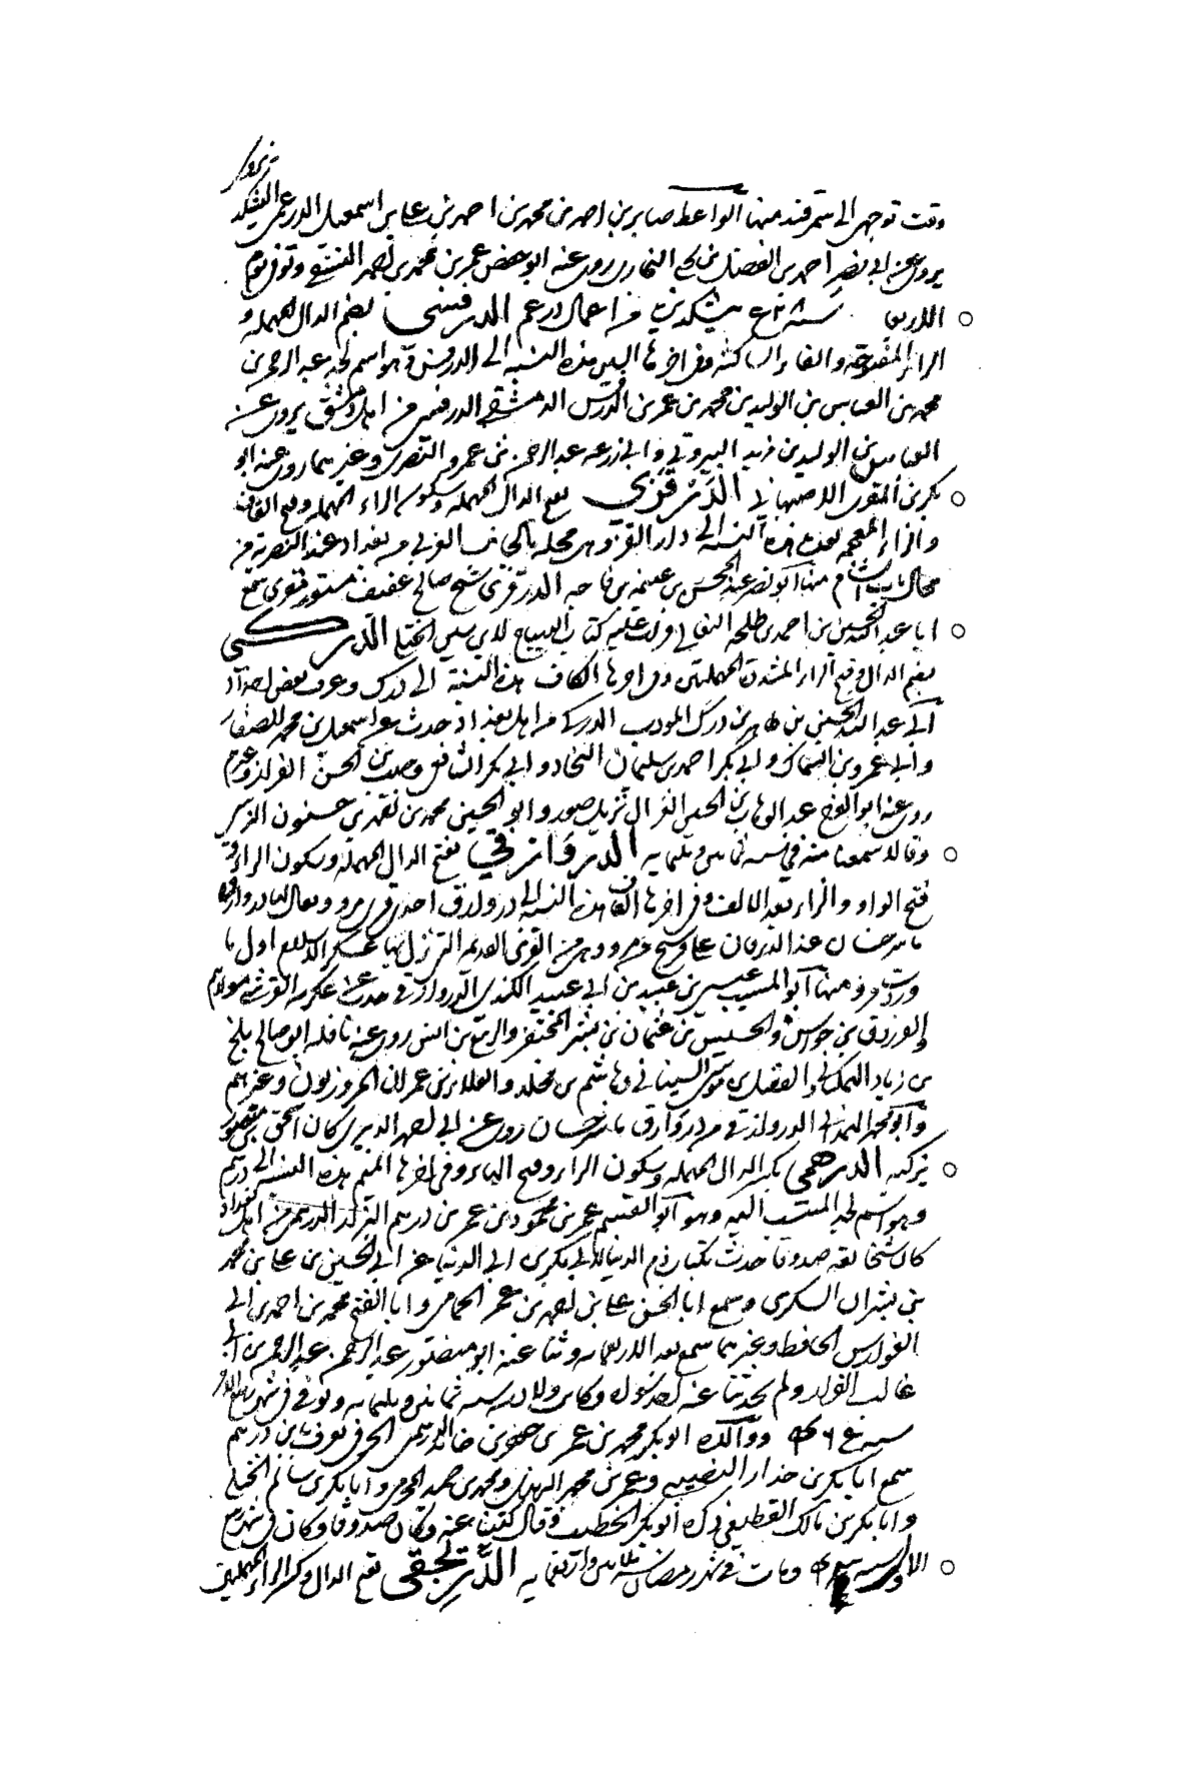 وقت توجهى الى سمرقند منها الواعظ صابر بن احمد بن محمد بن احمد بن على بن اسمعيل الدرغمى
يروى عن ابى نصر احمد بن الفضل بن يحيى البخارى روى عنه ابو حفص عمر بن محمد بن احمد النسفى وتوفى يوم
الاربعا من اعمال درغم الدرفسى بضم الدال المهملة و
الراء المفتوحة والفاء الساكنة وفى اخرها السين هذه النسبة الى الدرفس وهو اسم لجد عبد الرحمن بن
محمد بن العباس بن الوليد بن محمد بن عمر بن الدرفس الدمشقى الدرفسى من اهل دمشق يروى عن
العباس بن الوليد بن مزيد البيروتى وابى زرعه عبد الرحمن بن عمرو النصرى وغيرهما روى عنه ابو
بكر بن المقرى الاصبهانى الدَرقزى بفتح الدال المهملة وسكون الراء المهملة وفتح القاف
والزاء المعجمة بعدها هذه النسبة الى دار القز وهى محلة بالجانب الغربى من بغداد عند النصرية من
محال باب الشام منها ابو نصر عبد المحسن بن غنيمة بن فاحه الدرقزى شيخ صالح عفيف مستور قنوى سمع
ابا عبد الله الحسين بن احمد بن طلحة النعالى قرات عليه كتاب الديباج لابى الختلى الدركى
بضم الدال وفتح الراء المشددة المهملتين وفى اخرها الكاف هذه النسبة الى درك وعرف بعض اجداد
ابى عبد الله الحسين بن طاهر بن درك المودب الدركى من اهل بغداد حدث عن اسمعيل بن محمد الصفار
وابى عمرو بن السماك وابى بكر احمد بن سليمان النجاد وابى بكر الشافعى
روى عنه ابو الفرج عبد الوهاب بن الحسين الغزال نزيل صور وابو الحسين محمد بن احمد بن حسنون النرسى
وقال سمعنا منه فى سنة ثمانين وثلثمايه الدروازقى بفتح الدال المهملة وسكون الراء و
فتح الواو والزاء بعد الالف وفى اخرها القاف هذه النسبة الى دروازق احدى قرى مرو ويقال لها دروازه
ماسرجسان عند الدربقان على فرسخ من مرو وهى من القرى القديمه التى نزل بها عسكر الاسلام اول ما
وردت مرو منها ابو المسيب عيسى بن عبيد بن ابى عبيد الكندى الدروازقى حدث عن عكرمه القرشى مولاهم
والفرزدق بن جواس والحسين بن عثمان بن بشر المحتفز والربيع بن انس روى عنه نافله ابو صالح بلخ
بن زياد النمكبانى والفضل بن موسى السينانى وهاشم بن مخلد والعلاء بن عمران المروزيون وغيرهم
وابو محمد الدروازقى من دروازق ماسرجسان روى عن ابى احمد الزبيرى كان اسحق بن منصور
يزكيه الدرهمى بكسر الدال المهملة وسكون الراء وفتح الهاء وفى اخرها الميم هذه النسبة الى درهم
وهو اسم لجد المنتسب اليه وهو ابو القسم عمر بن محمود بن عمر بن درهم الدرهمى من اهل بغداد
كان شيخا ثقة صدوقا حدث بكتاب ذم الدنيا لابى بكر بن ابى الدنيا عن ابى الحسين بن على بن محمد
بن بشران السكرى وسمع ابا الحسن على بن احمد بن عمر الحمامى وابا الفتح محمد بن احمد بن ابى
الفوارس الحافظ وغيرهما سمع بعد الاربعمايه وثنا عنه ابو منصور عبد الرحمن بن ابى
غالب القزاز ولم يحدثنا عنه احد سواه وكانت ولادته سنة ثمانين وثلثمايه وتوفى فى شهر ربيع
وابو بكر محمد بن عمر بن جعفر بن خالد الدرهمى الخرقى يعرف بابن درهم
سمع ابا بكر بن خلاد النصيبى وعمر بن محمد ومحمد بن حميد المخرمى وابا بكر بن سالم الختلى
وابا بكر بن مالك القطيعى ذكره ابو بكر الخطيب وقال كتبنا عنه وكان صدوقا وكان
ومات فى شهر رمضان سنة واربعمايه الدَرِيجَقى بفتح الدال وكسر الراء المهملتين